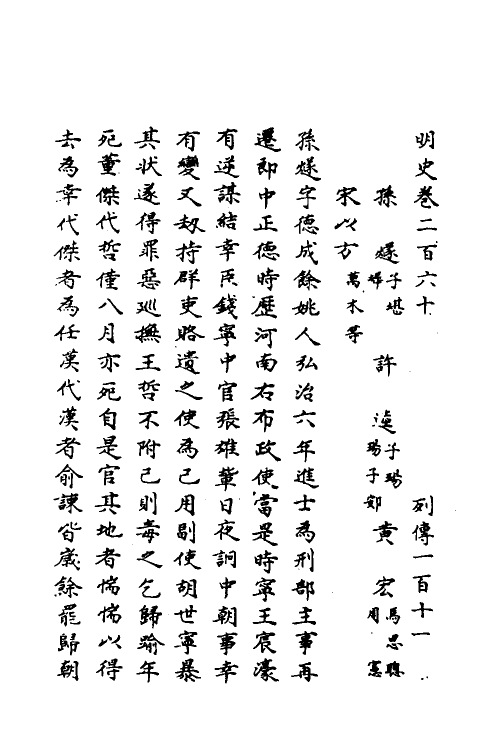 明史卷二百六十 列傳一百十一
孫燧 子堪 墀 許逵 子瑒 瑒子郯 黃宏 馬思聰 周憲
宋以方 萬木等
孫燧字德成餘姚人弘治六年進士為刑部主事再
遷郎中正德時歷河南右布政使當是時寧王宸濠
有逆謀結幸臣錢寧中官張雄輩日夜詗中朝事幸
有變又劫持群吏賂遺之使為己用副使胡世寧暴
其狀遂得罪惡巡撫王哲不附己則毒之乞歸踰年
死董傑代哲僅八月亦死自是官其地者惴惴以得
去為幸代傑者為任漢代漢者俞諫皆歲餘罷歸朝